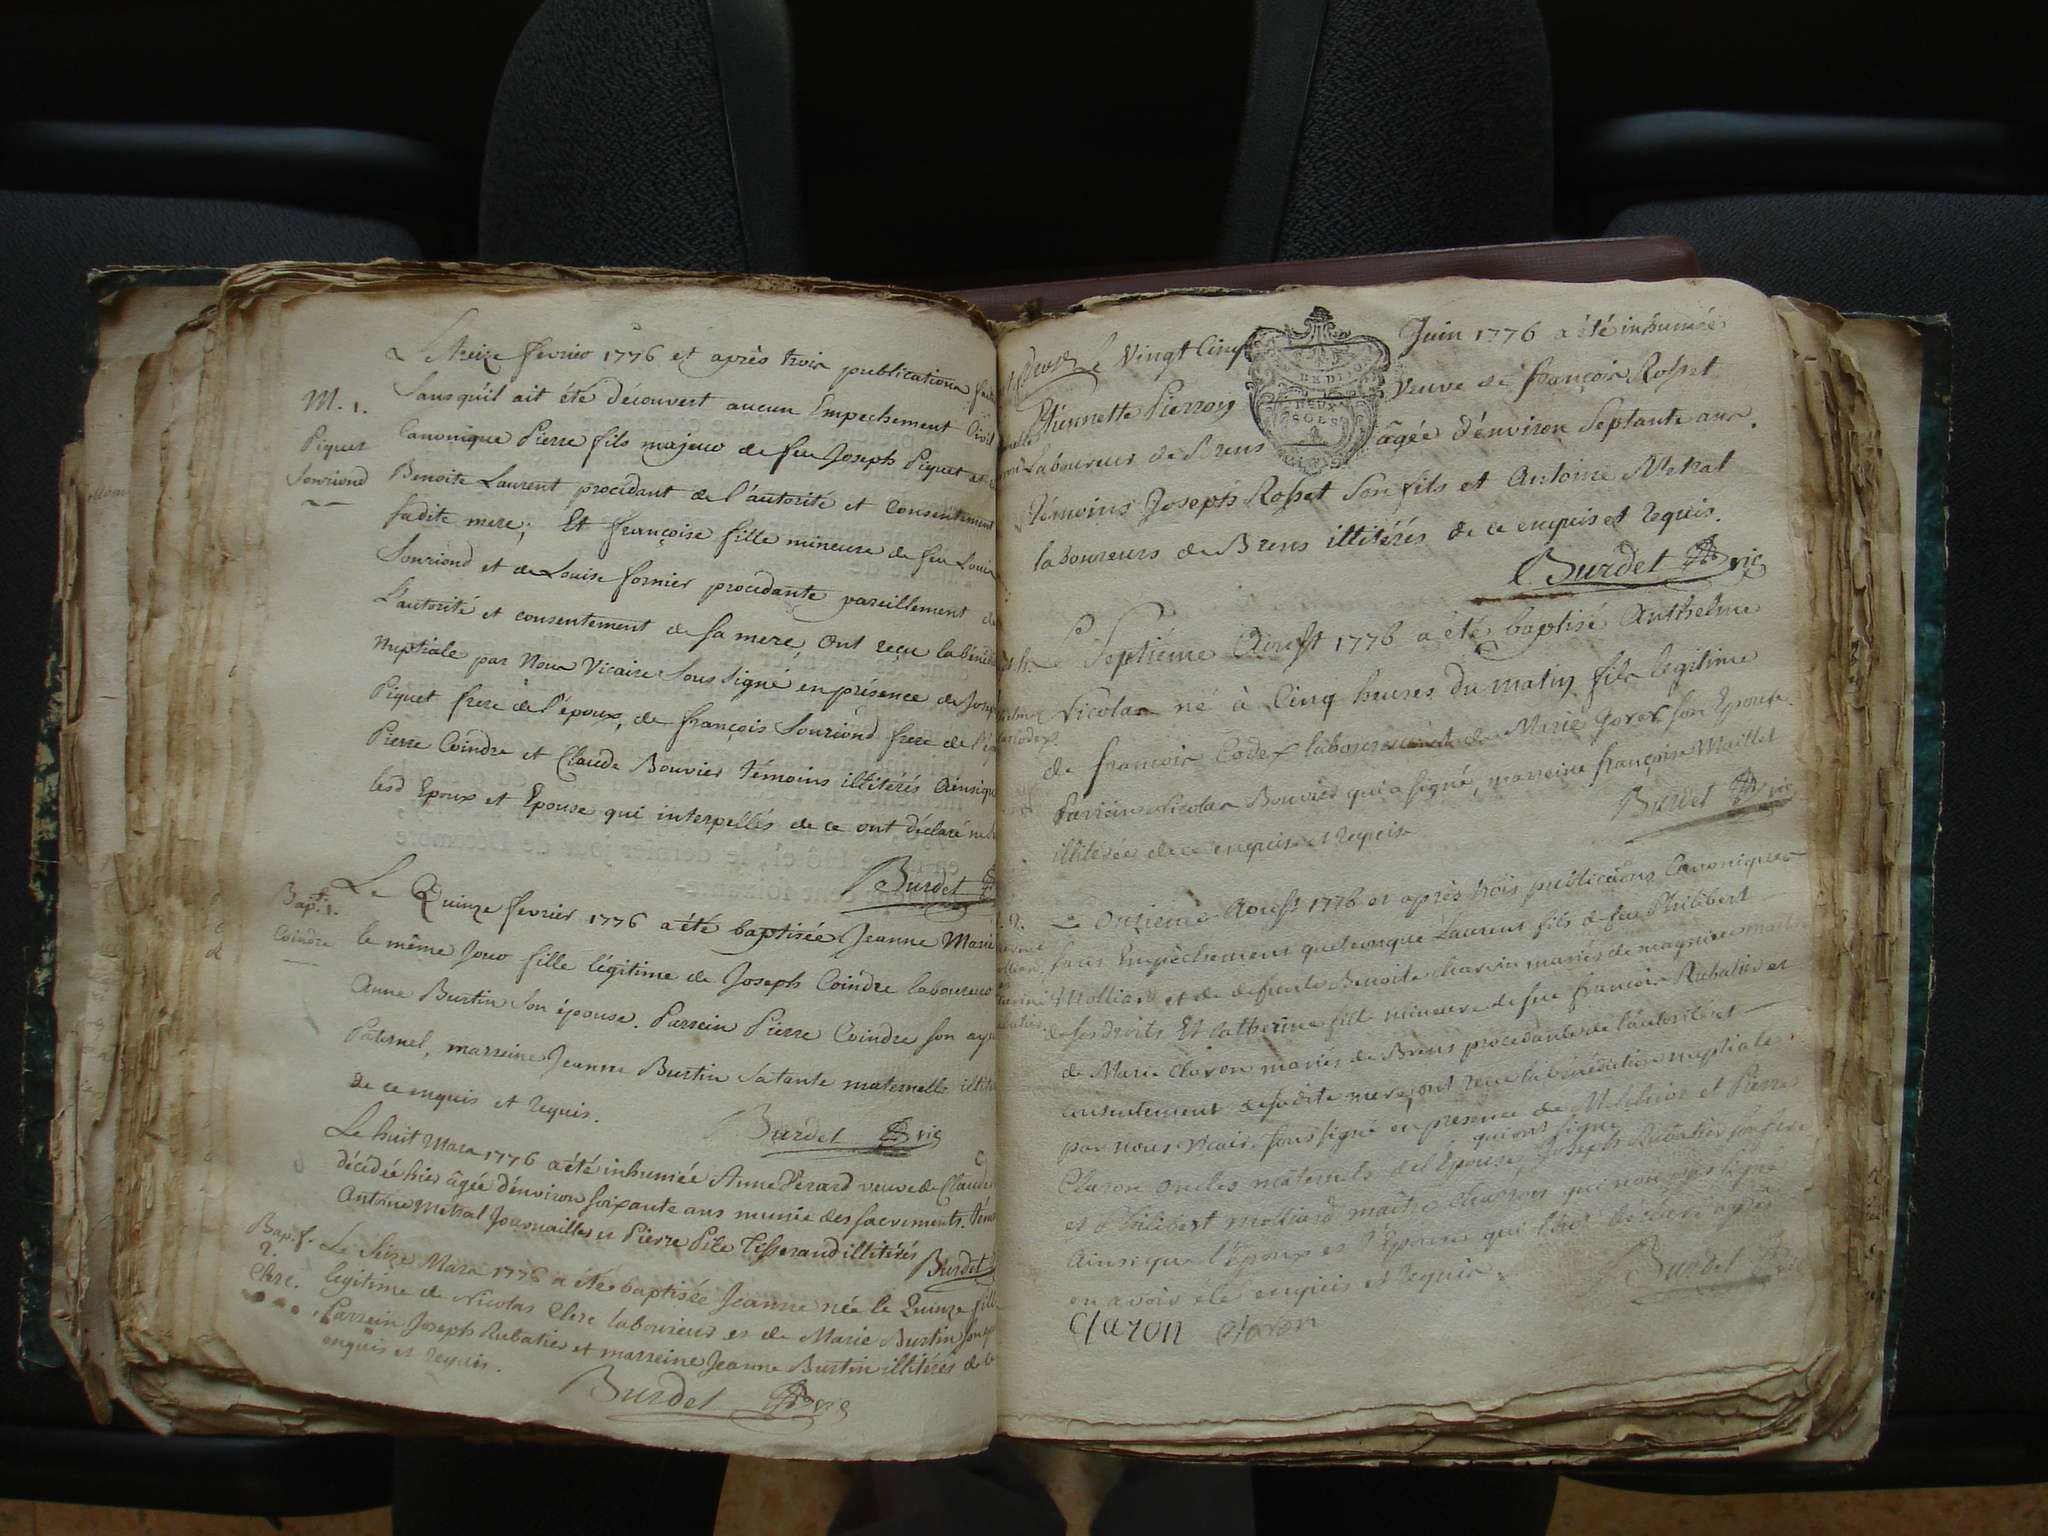 Le treize fevrier 1776 et après trois publications
M. 1.
Sans qu'il ait été découvert aucun Empechement Civil
Canonique Pierre fils majeur de feu Joseph Piquet et
Piquet
Benoite Laurent procedant de l'autorité et consentement
Souriond
sadite mere; Et françoise fille mineure de feu Louis
Souriond et de Louise fornier procedante pareillement de
L'autorité et consentement de sa mere, ont reçu la
nuptiale par Nous Vicaire Sous signé en présence de
Piquet frere de l'époux, de françois Souriond frere de
Pierre Coindre et Claude Bouvier témoins illitérés Ainsique
lesd Epoux et Epouse qui interpellés de ce ont déclaré
Burdet
Bap. f. 1.
Coindre
Le Quinze fevrier 1776 a été baptisée Jeanne Marie
le même Jour fille légitime de Joseph Coindre laboureur
Anne Burtin son épouse. Parrein Pierre Coindre son
Paternel, marreine Jeanne Burtin sa tante maternelle
de ce enquis et requis.
Burdet vic
Le huit Mars 1776 a été inhumée Anne Perard veuve de Claude
décédée hier âgée d'environ soixante ans munie des sacrements.
Antoine Metral Journailler et Pierre Tisserand illitérés
Burdet
Bap. f.
2.
Clerc.
Le Seize Mars 1776 a été baptisée Jeanne née le Quinze fille
legitime de Nicolas Clerc laboureur et de Marie Burtin
Parrein Joseph Rubatier et marreine Jeanne Burtin illitérés de ce
enquis et requis.
Burdet vic
Le Vingt Cinq Juin 1776 a été inhumée
Etiennette Pierron Veuve de françois Rosset
Laboureur de Brens âgée d'environ Septante ans.
témoins Joseph Rosset son fils et Antoine Metral
laboureurs de Brens illitérés de ce enquis et requis.
Burdet vic
Le Septième Aoust 1776 a été baptisé Anthelme
Nicolas né à Cinq heures du matin fils legitime
de francois Codex laboureur et de Marie son Epouse.
Parrein Nicolas Bouvier qui a signé, marreine françoise Maillet
illiterée de ce enquise et requise
Burdet vic
Le Onzieme Aoust 1776 et après trois publications Canoniques
sans Empêchement quelconque Laurent fils de feu Philibert
Molliard et de defunte Benoite charvin mariés de magnieu maitre
de ses droits Et Catherine fille mineure de feu francois Rubatier et
de Marie Claron mariés de Brens procedante de l'autorité et
consentement de sadite mere, ont reçu la bénédiction nuptiale
par nous vicaire soussigné en presence de Melchior et Pierre
qui ont signé
Claron oncles maternels de l'Epouse, Joseph Rubatier son frere
et Philibert molliard maitre charron qui n'ont pas signé
Ainsi que l'époux et l'Epouse qui l'ont déclaré après
en avoir été enquis et requis.
Burdet vic
Claron Claron